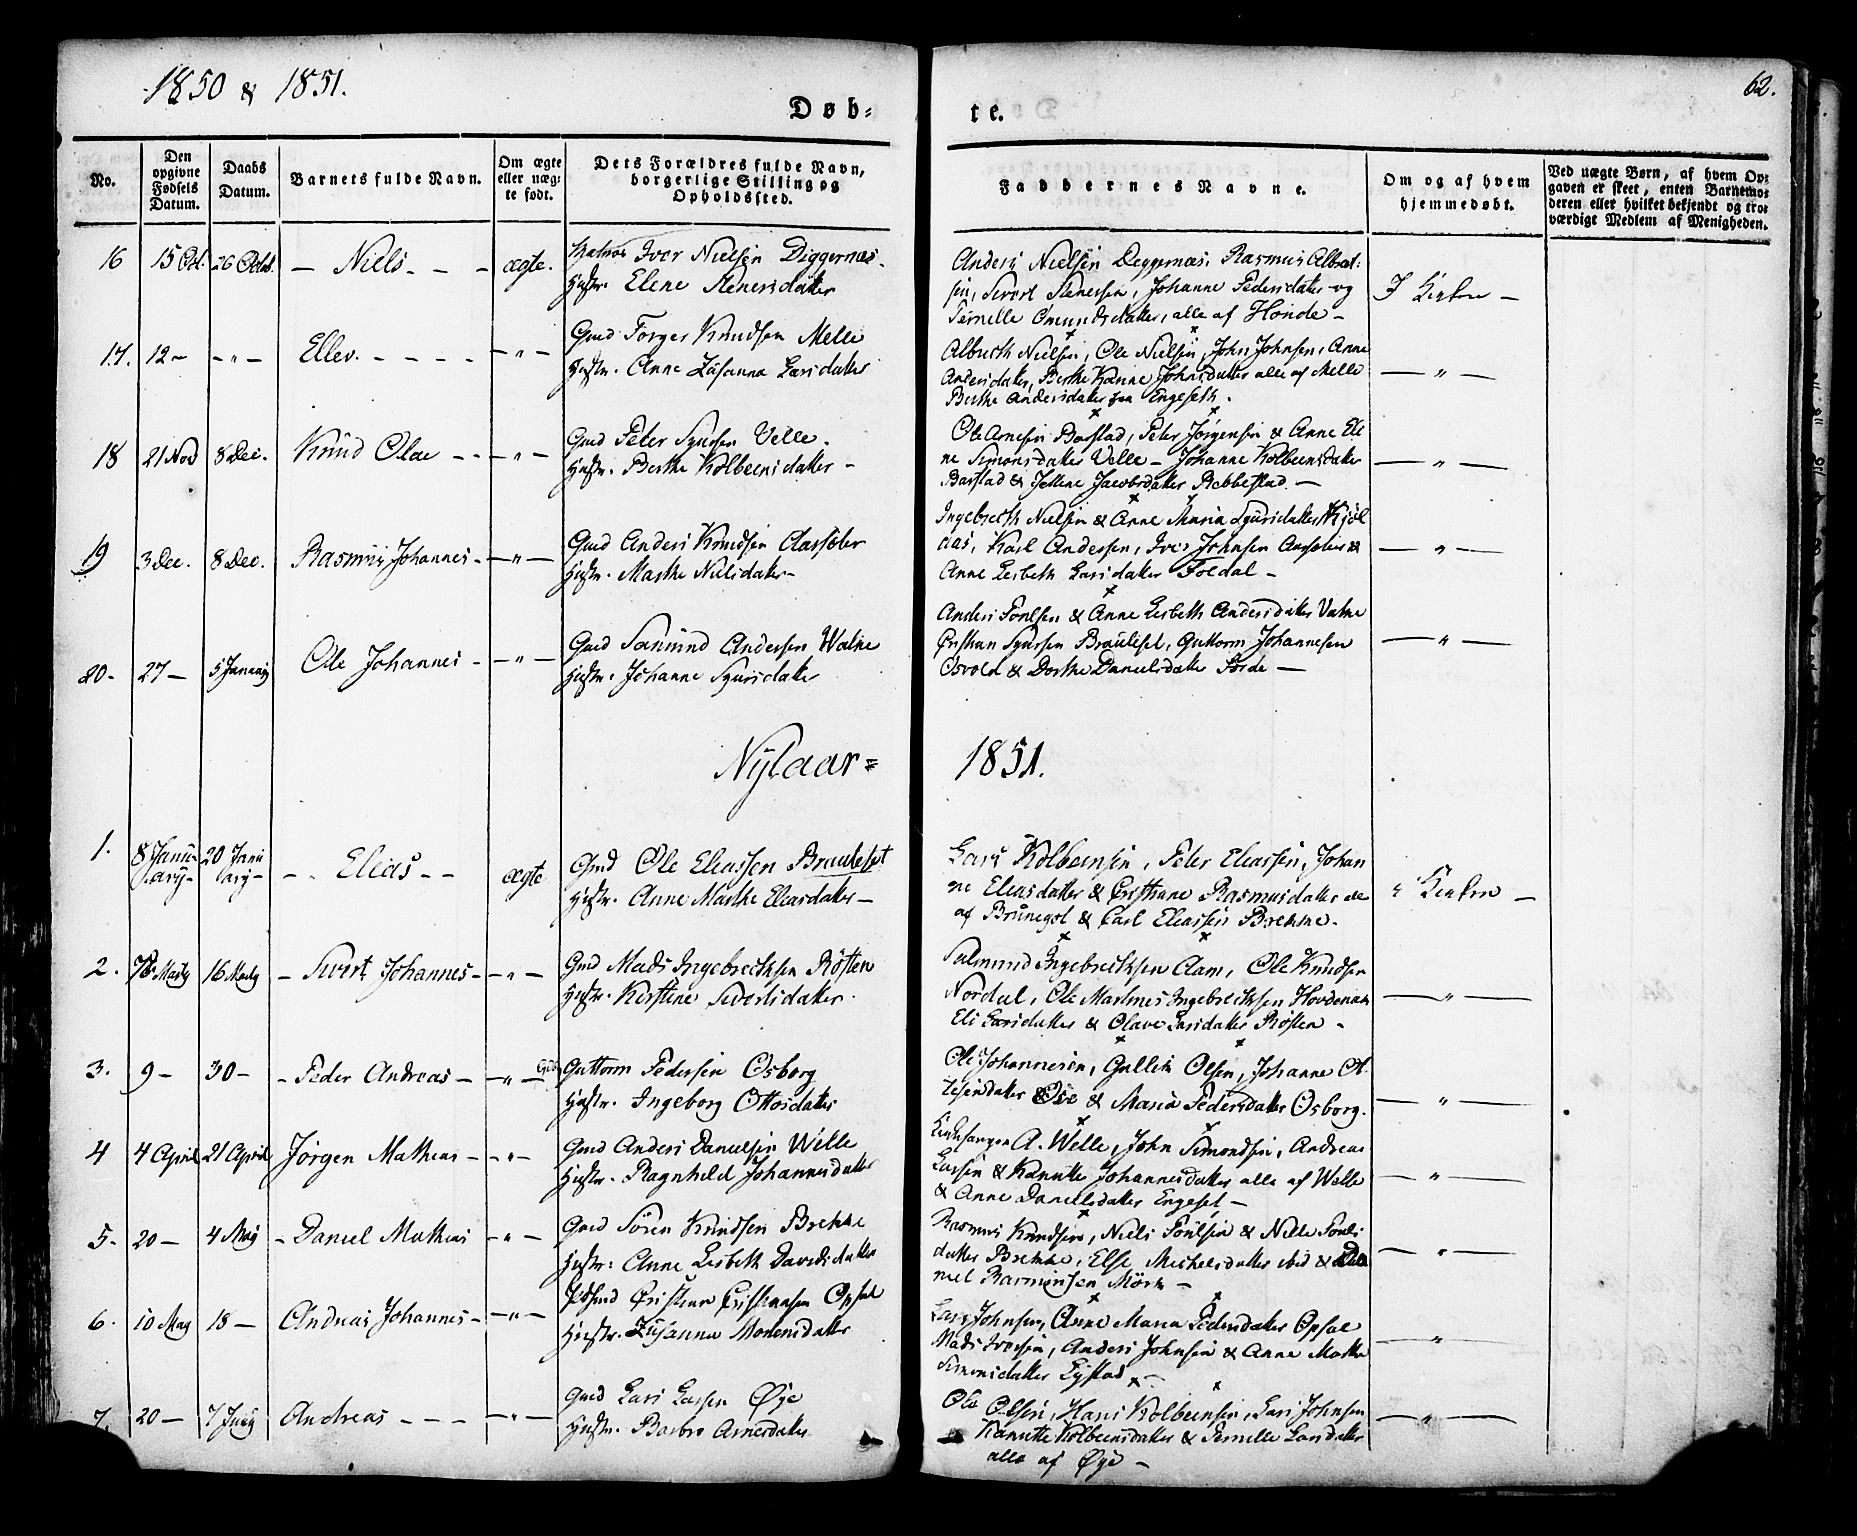 1850 & 1851.
62.
Døb-
te.
No.
Den opgivne Fødsels Datum.
Daabs Datum.
Barnets fulde Navn.
Om ægte eller uægte født.
Dets Forældres fulde Navn, borgerlige Stilling og Opholdssted.
Faddernes Navne.
Om og af hvem hjemmedøbt.
Ved uægte Børn, af hvem Opgaven er skeet, enten Barnemoderen eller hvilket bekjendt og troværdigt Medlem af Menigheden.
16 15 Oct. 26 Octob. — Niels - - - ægte. Iver Nielsen Diggernæs.
Hustr. Elene Stenersdatter
Anders Nielsen Deggernæs, Rasmus
Sivert Stenersen, Johanne Pedersdatter og
Pernille Omundsdatter, alle af Honde -
I Kirken —
17. 12 - - " - Ellev. - - - - - " - Gmd Torger Knudsen Melle
Hustr. Anne Zusanna Larsdatter
Albrech Nielsen, Ole Nielsen, John Johnsen, Anne
Andersdatter, Berthe Hanne Johnsdatter alle af Melle
Berthe Andersdatter fra Engeseth.
— " —
18 21 Nov 8 Dec. Knud Olae - - " - Gmd Peter Sjursen Velle.
Hustr. Berthe Kolbeensdatter -
Ole Arnesen Barstad, Peter Jørgensen & Anne Ele
ne Simonsdatter Velle - Johanne Kolbeensdatter
Barstad & Jacobsdatter Rebbestad. —
— " —
19 3 Dec. 8 Dec. Rasmus Johannes - - " - Gmd Anders Knudsen Aarsæter
Hustr. Marthe Nielsdatter -
Ingebrecth Nielsen & Anne Maria Sjursdatter
Karl Andersen, Iver Johnsen Aarsæter &
Anne Lisbeth Larsdatter Foldal -
— " —
20 - 27 — 5 January Ole Johannes - - " - Gmd Samund Andersen Watne
Hustr. Johanne Sjursdatter
Anders Poulsen & Anne Lisbeth Andersdatter Vatne
Cristian Sjursen Brauteset, Guttorm Johannesen
Osvold & Dorthe Danielsdatter Førde —
— " —
Nytaar = 1851.
1. 8 January - 20 January - - - Elias - - ægte Gmd Ole Eleassen Brauteset
Hustr. Anne Marthe Eleasdatter —
Lars Kolbeensen, Peter Eleassen, Johan
ne Eleasdatter & Cristiane Rasmusdatter
af Brunegot & Carl Eleassen Brekke.
" Kirken —
2. Marty 16 Marty - Sivert Johannes - - " - Gmd Mads Ingebrecthsen Røsten
Hustr. Kirstine Sivertsdatter.
Salmund Ingebrecthsen Aam, Ole Knudsen
Nordal, Ole Martines Ingebrecthsen Hovdenak
Eli Larsdatter & Olave Larsdatter Røsten -
— " —
3. 9 - 30 - - Peder Andreas - - " - Gmd Guttorm Pedersen Osborg
Hustr. Ingeborg Ottosdatter
Ole Johannesen, Gullik Olsen, Johanne Ot
tesensdatter Øie & Maria Pedersdatter Osborg.
— " —
4 4 April 21 April Jørgen Mathias - - " - Gmd Anders Danielsen Welle
Hustr. Ragnhild Johannesdatter
Kirkesanger A. Welle, John Simondsen, Andreas
Larsen & Kanutte Johannesdatter alle af Welle
& Anne Danielsdatter Engeset —
— " —
5. 20 — 4 May - Daniel Mathias - " - Gmd Søren Knudsen Brekke
Hustr: Anne Lisbeth Davidsdatter
Rasmus Knudsen, Niels Poulsen & Nille Pouls
datter Brekke, Else Michelsdatter ibid & Da
niel Rasmussen Mørk —
— " —
6. 10 May 18 — Andreas Johannes - - " - Cristen Cristensen Opsal
Hustr. Zusanna Monensdatter
Lars Johnsen, Anne Maria Pedersdatter Opsal
Mads Iversen, Anders Johnsen & Anne Marthe
Simonsdatter Eystad -
— " —
7. 20 — 7 Juny Andreas - - - - " - Gmd Lars Larsen Øye
Hustr. Barbro Arnesdatter
Ole Olsen, Hans Kolbeensen, Lars Johnsen
Kanutte Kolbeensdatter & Pernille Larsdatter
alle af Øye —
— " —